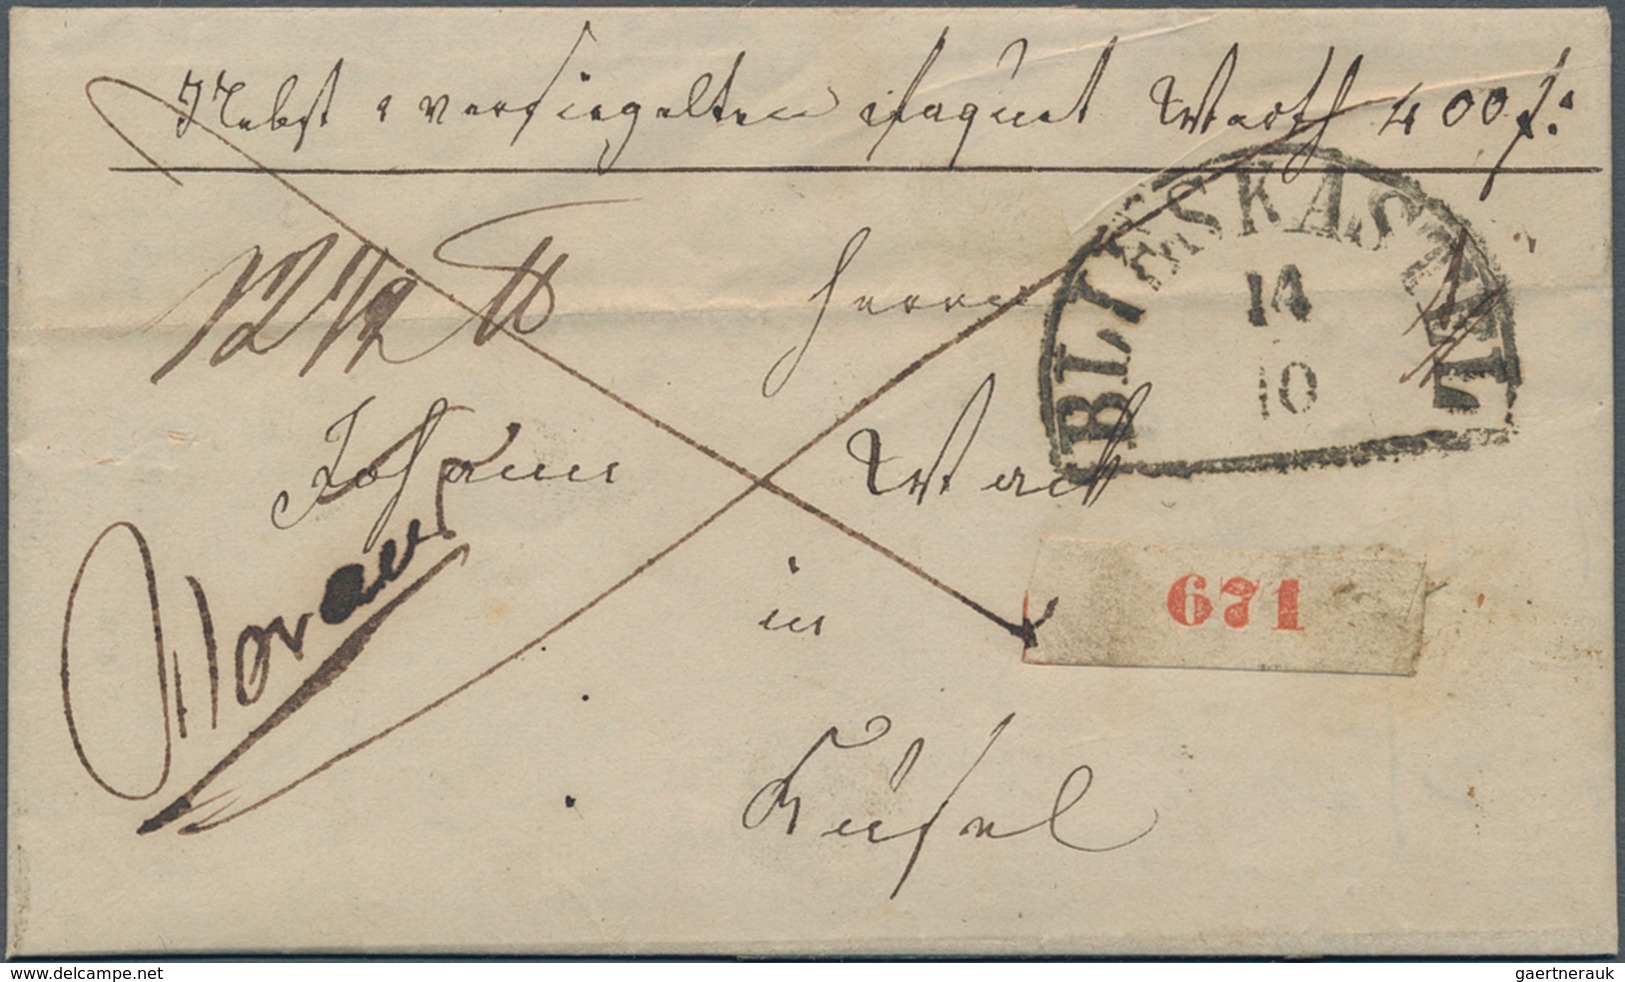 Nebst 1 versiegelten Paquet Werth 400 f:
BLIESKASTEL
14
10
12 1/2 ℔
Herrn
Johann
in
671
Kusel
delcampe.net
gaertnerauk